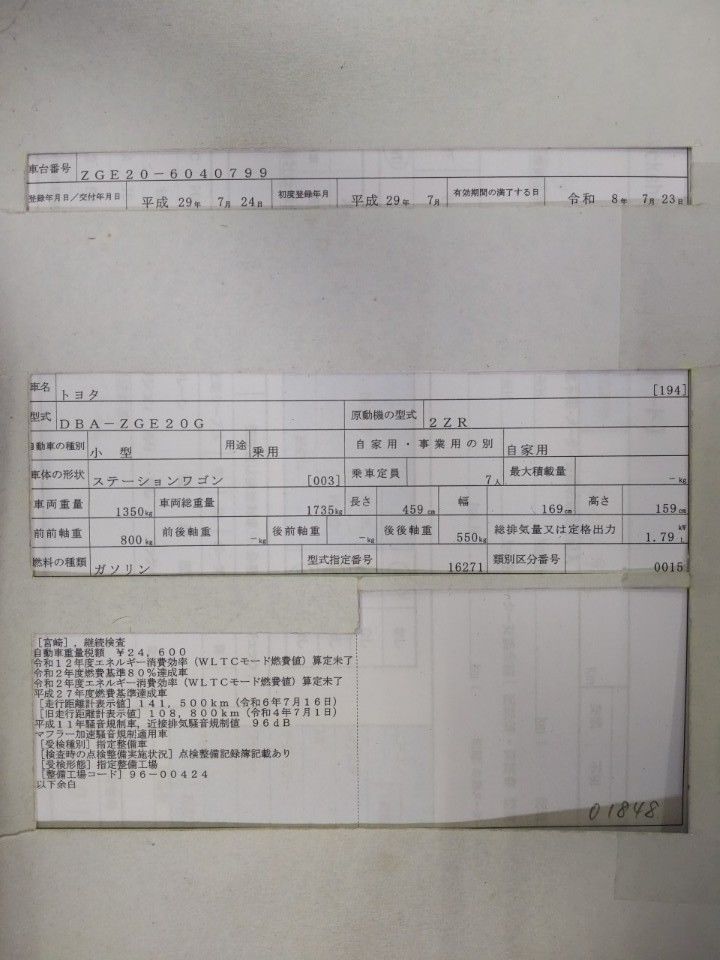 車台番号 ZGE20-6040799
登録年月日/交付年月日 平成 29年 7月 24日 初度登録年月 平成 29年 7月 有効期間の満了する日 令和 8年 7月 23日
車名 トヨタ [194]
型式 DBA-ZGE20G 原動機の型式 2ZR
自動車の種別 小 型 用途 乗用 自家用・事業用の別 自家用
車体の形状 ステーションワゴン [003] 乗車定員 7人 最大積載量 -kg
車両重量 1350kg 車両総重量 1735kg 長さ 459cm 幅 169cm 高さ 159cm
前前軸重 800kg 前後軸重 -kg 後前軸重 -kg 後後軸重 550kg 総排気量又は定格出力 1.79 kW L
燃料の種類 ガソリン 型式指定番号 16271 類別区分番号 0015
[宮崎],継続検査
自動車重量税額 ¥24,600
令和12年度エネルギー消費効率(WLTCモード燃費値)算定未了
令和2年度燃費基準80%達成車
令和2年度エネルギー消費効率(WLTCモード燃費値)算定未了
平成27年度燃費基準達成車
[走行距離計表示値]141,500km(令和6年7月16日)
[旧走行距離計表示値]108,800km(令和4年7月1日)
平成11年騒音規制車,近接排気騒音規制値 96dB
マフラー加速騒音規制適用車
[受検種別]指定整備車
[検査時の点検整備実施状況]点検整備記録簿記載あり
[受検形態]指定整備工場
[整備工場コード]96-00424
以下余白
01848